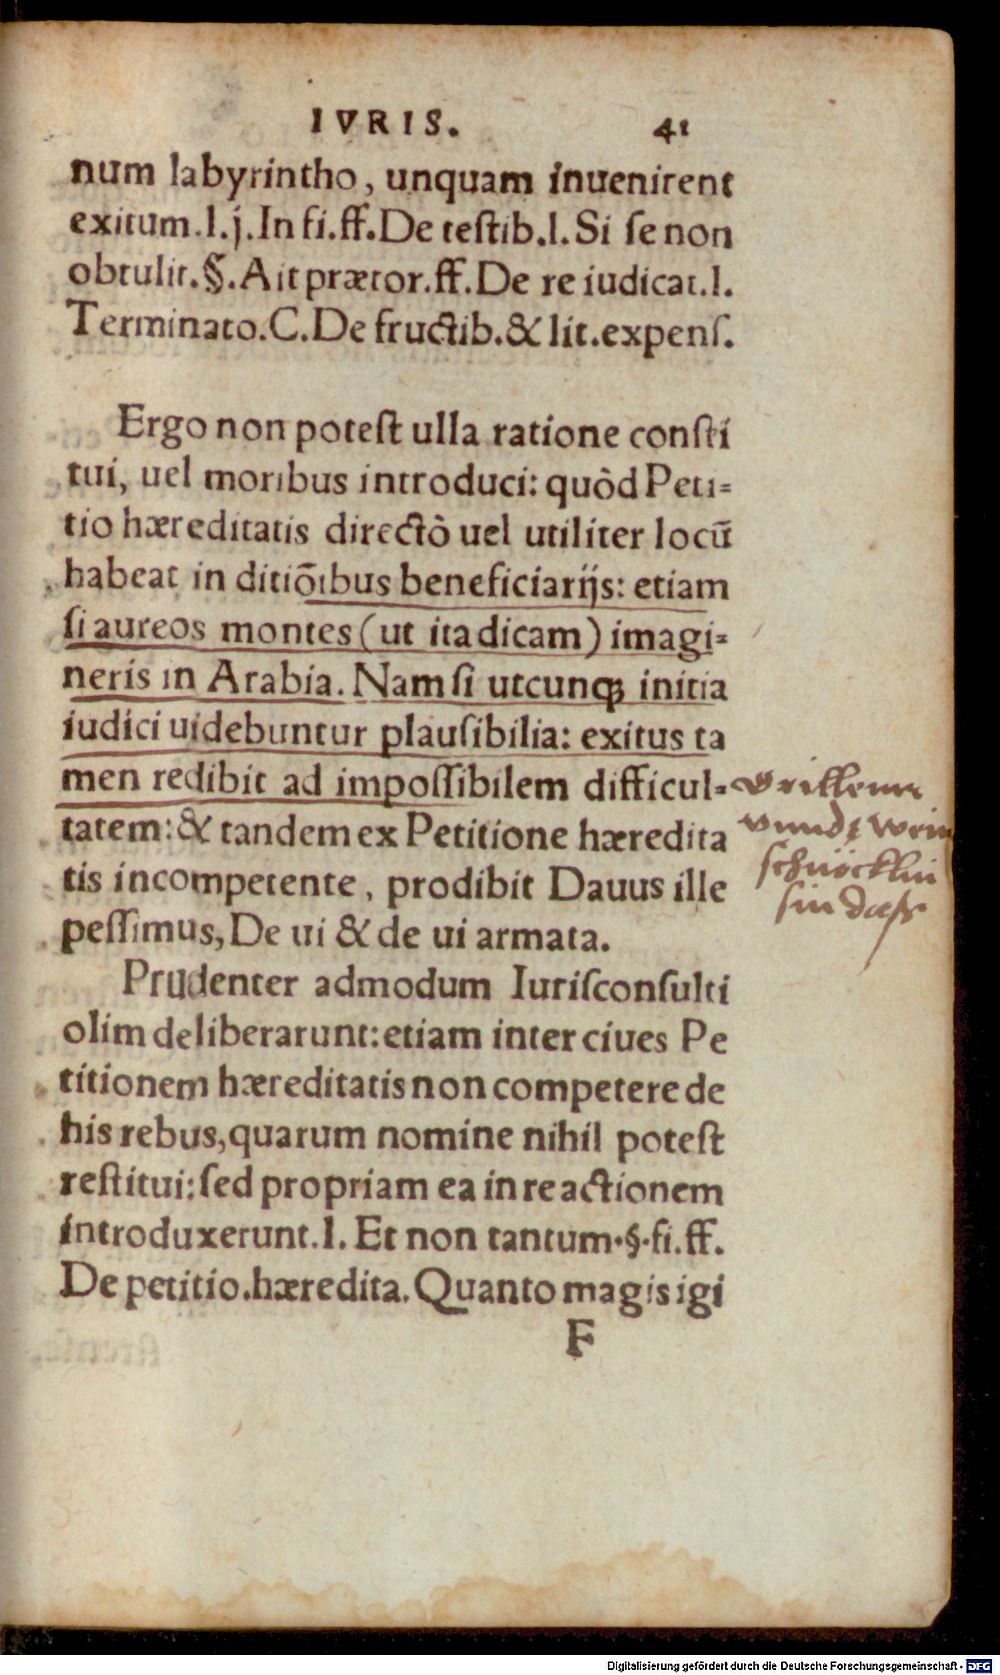 IVRIS. 41
num labyrintho, unquam inuenirent
exitum.l.j.In fi.ff.De teſtib.l.Si ſe non
obtulit.§.Ait prætor.ff.De re iudicat.l.
Terminato.C.De fructib.& lit.expenſ.
Ergo non poteſt ulla ratione conſti
tui, uel moribus introduci: quòd Peti=
tio hæreditatis directò uel utiliter locū
habeat in ditiōibus beneficiarijs: etiam
ſi aureos montes (ut ita dicam) imagi=
neris in Arabia. Nam ſi utcunq; initia
iudici uidebuntur plauſibilia: exitus ta
men redibit ad impoſſibilem difficul=
tatem: & tandem ex Petitione hæredita
tis incompetente, prodibit Dauus ille
peſſimus, De ui & de ui armata.
Prudenter admodum Iuriſconſulti
olim deliberarunt: etiam inter ciues Pe
titionem hæreditatis non competere de
his rebus, quarum nomine nihil poteſt
reſtitui: ſed propriam ea in re actionem
introduxerunt.l. Et non tantum.§.fi.ff.
De petitio.hæredita. Quanto magis igi
F
Grillenn
vnnd
ſein daſs
Digitalisierung gefördert durch die Deutsche Forschungsgemeinschaft - DFG